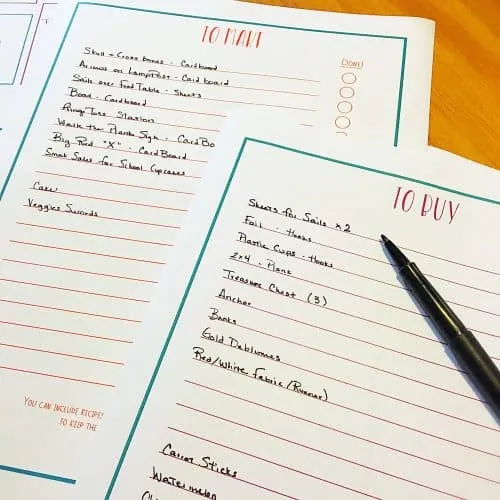 TO MAKE
DONE!
Skull + Cross bones - Cardboard
Arrows on Lamp Post - Cardboard
Sails over Food Table - Sheets
Boat - Cardboard
Ring Toss Station
Walk the Plank Sign - CardBo
Big Red "X" - CardBoard
Small Sails for School Cupcakes
Cake
Veggies Swords
YOU CAN INCLUDE RECIPES
TO KEEP THE
TO BUY
Sheets for Sails x2
Foil - Hooks
Plastic Cups - Hooks
2x4 - Plank
Treasure Chest (3)
Anchor
Gold Dabloones
Red/White Fabric (Runner)
Carrot Sticks
Watermelon